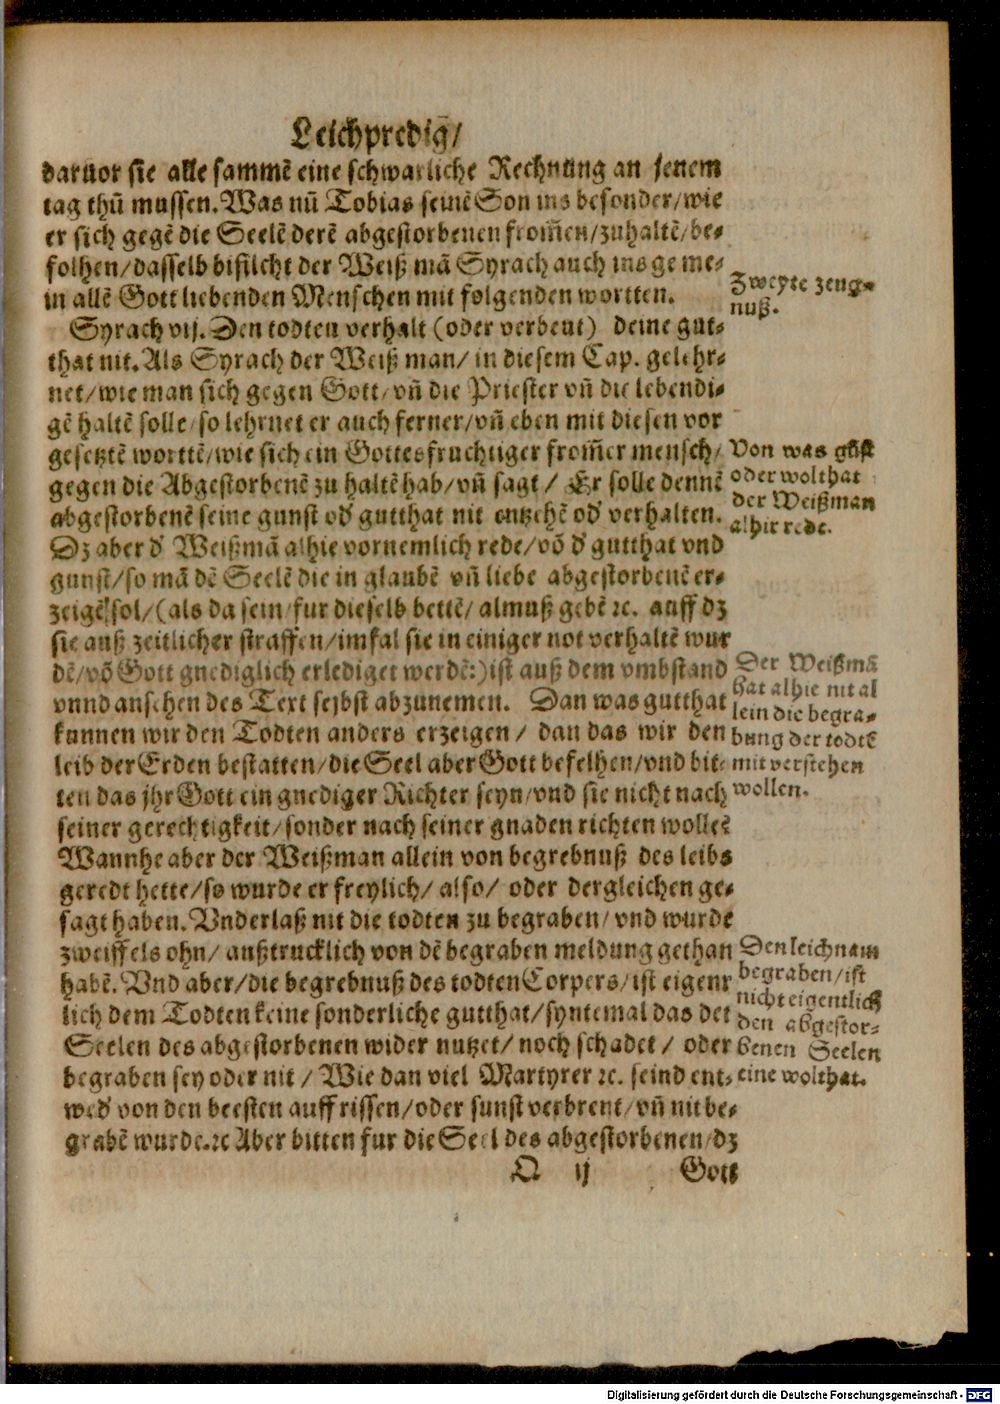 Leichpredig/
daruor sie alle sammẽ eine schwarliche Rechnung an jenem
tag thů mussen. Was nũ Tobias seinẽ Son ins besonder/wie
er sich gegẽ die Seelẽ derẽ abgestorbenen from̃en/zuhaltẽ/be-
folhen/dasselb bifilcht der Weiß mã Syrach auch ins geme-
in allẽ Gott liebenden Menschen mit folgenden wortten.
Syrach vij. Den todten verhalt (oder verbeut) deine gut-
that nit. Als Syrach der Weiß man/ in diesem Cap. gelehr-
net/wie man sich gegen Gott/vñ die Priester vñ die lebendi-
gẽ haltẽ solle/so lehrnet er auch ferner/vñ eben mit diesen vor
gesetztẽ worttẽ/wie sich ein Gottesfruchtiger from̃er mensch/
gegen die Abgestorbenẽ zu haltẽ hab/vñ sagt / Er solle dennẽ
abgestorbenẽ seine gunst od' gutthat nit entzehẽ od' verhalten.
Dz aber d' Weißmã alhie vornemlich rede/võ d' gutthat vnd
gunst/so mã dẽ Seelẽ die in glaubẽ vñ liebe abgestorbenẽ er-
zeigẽ sol/(als da sein fur dieselb bettẽ/ almuß gebẽ ꝛc. auff dz
sie auß zeitlicher straffen/imfal sie in einiger not verhaltẽ wur
dẽ/võ Gott gnediglich erlediget werdẽ:) ist auß dem vmbstand
vnnd ansehen des Text selbst abzunemen. Dan was gutthat
kunnen wir den Todten anders erzeigen / dan das wir den
leib der Erden bestatten/die Seel aber Gott befelhen/vnd bit-
ten das jhr Gott ein gnediger Richter seyn/vnd sie nicht nach
seiner gerechtigkeit/sonder nach seiner gnaden richten wolleẽ
Wannhe aber der Weißman allein von begrebnuß des leibs
geredt hette/so wurde er freylich/ also/ oder dergleichen ge-
sagt haben. Vnderlaß nit die todten zu begraben/ vnd wurde
zweiffels ohn/ außtrucklich von dẽ begraben meldung gethan
habẽ. Vnd aber/die begrebnuß des todten Corpers/ist eigent
lich dem Todten keine sonderliche gutthat/syntemal das det
Seelen des abgestorbenen wider nutzet/ noch schadet / oder
begraben sey oder nit / Wie dan viel Martyrer ꝛc. seind ent-
wed' von den beesten auffrissen/oder sunst verbrent/vñ nit be-
grabẽ wurdẽ.ꝛc Aber bitten fur die Seel des abgestorbenen/dz
Q ij Gott
Zweyte zeug-
nuß.
Von was gũst
oder wolthat
der Weißman
alhir rede.
Der Weißmã
hat alhie nit al
lein die begra-
bung der todtẽ
mit verstehen
wollen.
Den leichnam
begraben/ist
nicht eigentlich
den abgestor-
benen Seelen
eine wolthat.
Digitalisierung gefördert durch die Deutsche Forschungsgemeinschaft - DFG